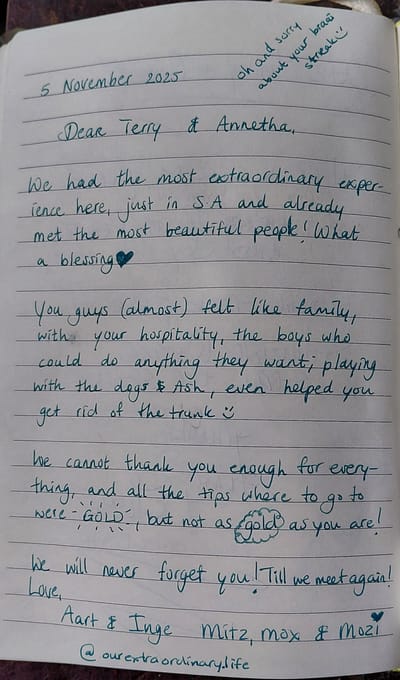 oh and sorry
about your braai
streak ☺
5 November 2025
Dear Terry & Annetha,
We had the most extraordinary exper-
ience here, just in S.A and already
met the most beautiful people! What
a blessing ♥
You guys (almost) felt like family,
with your hospitality, the boys who
could do anything they want; playing
with the dogs & Ash, even helped you
get rid of the trunk ☺
We cannot thank you enough for every-
thing, and all the tips where to go to
were -GOLD-, but not as gold as you are!
We will never forget you! Till we meet again!
Love,
Aart & Inge Mitz, mox & Mozi ♥
@ourextraordinary.life